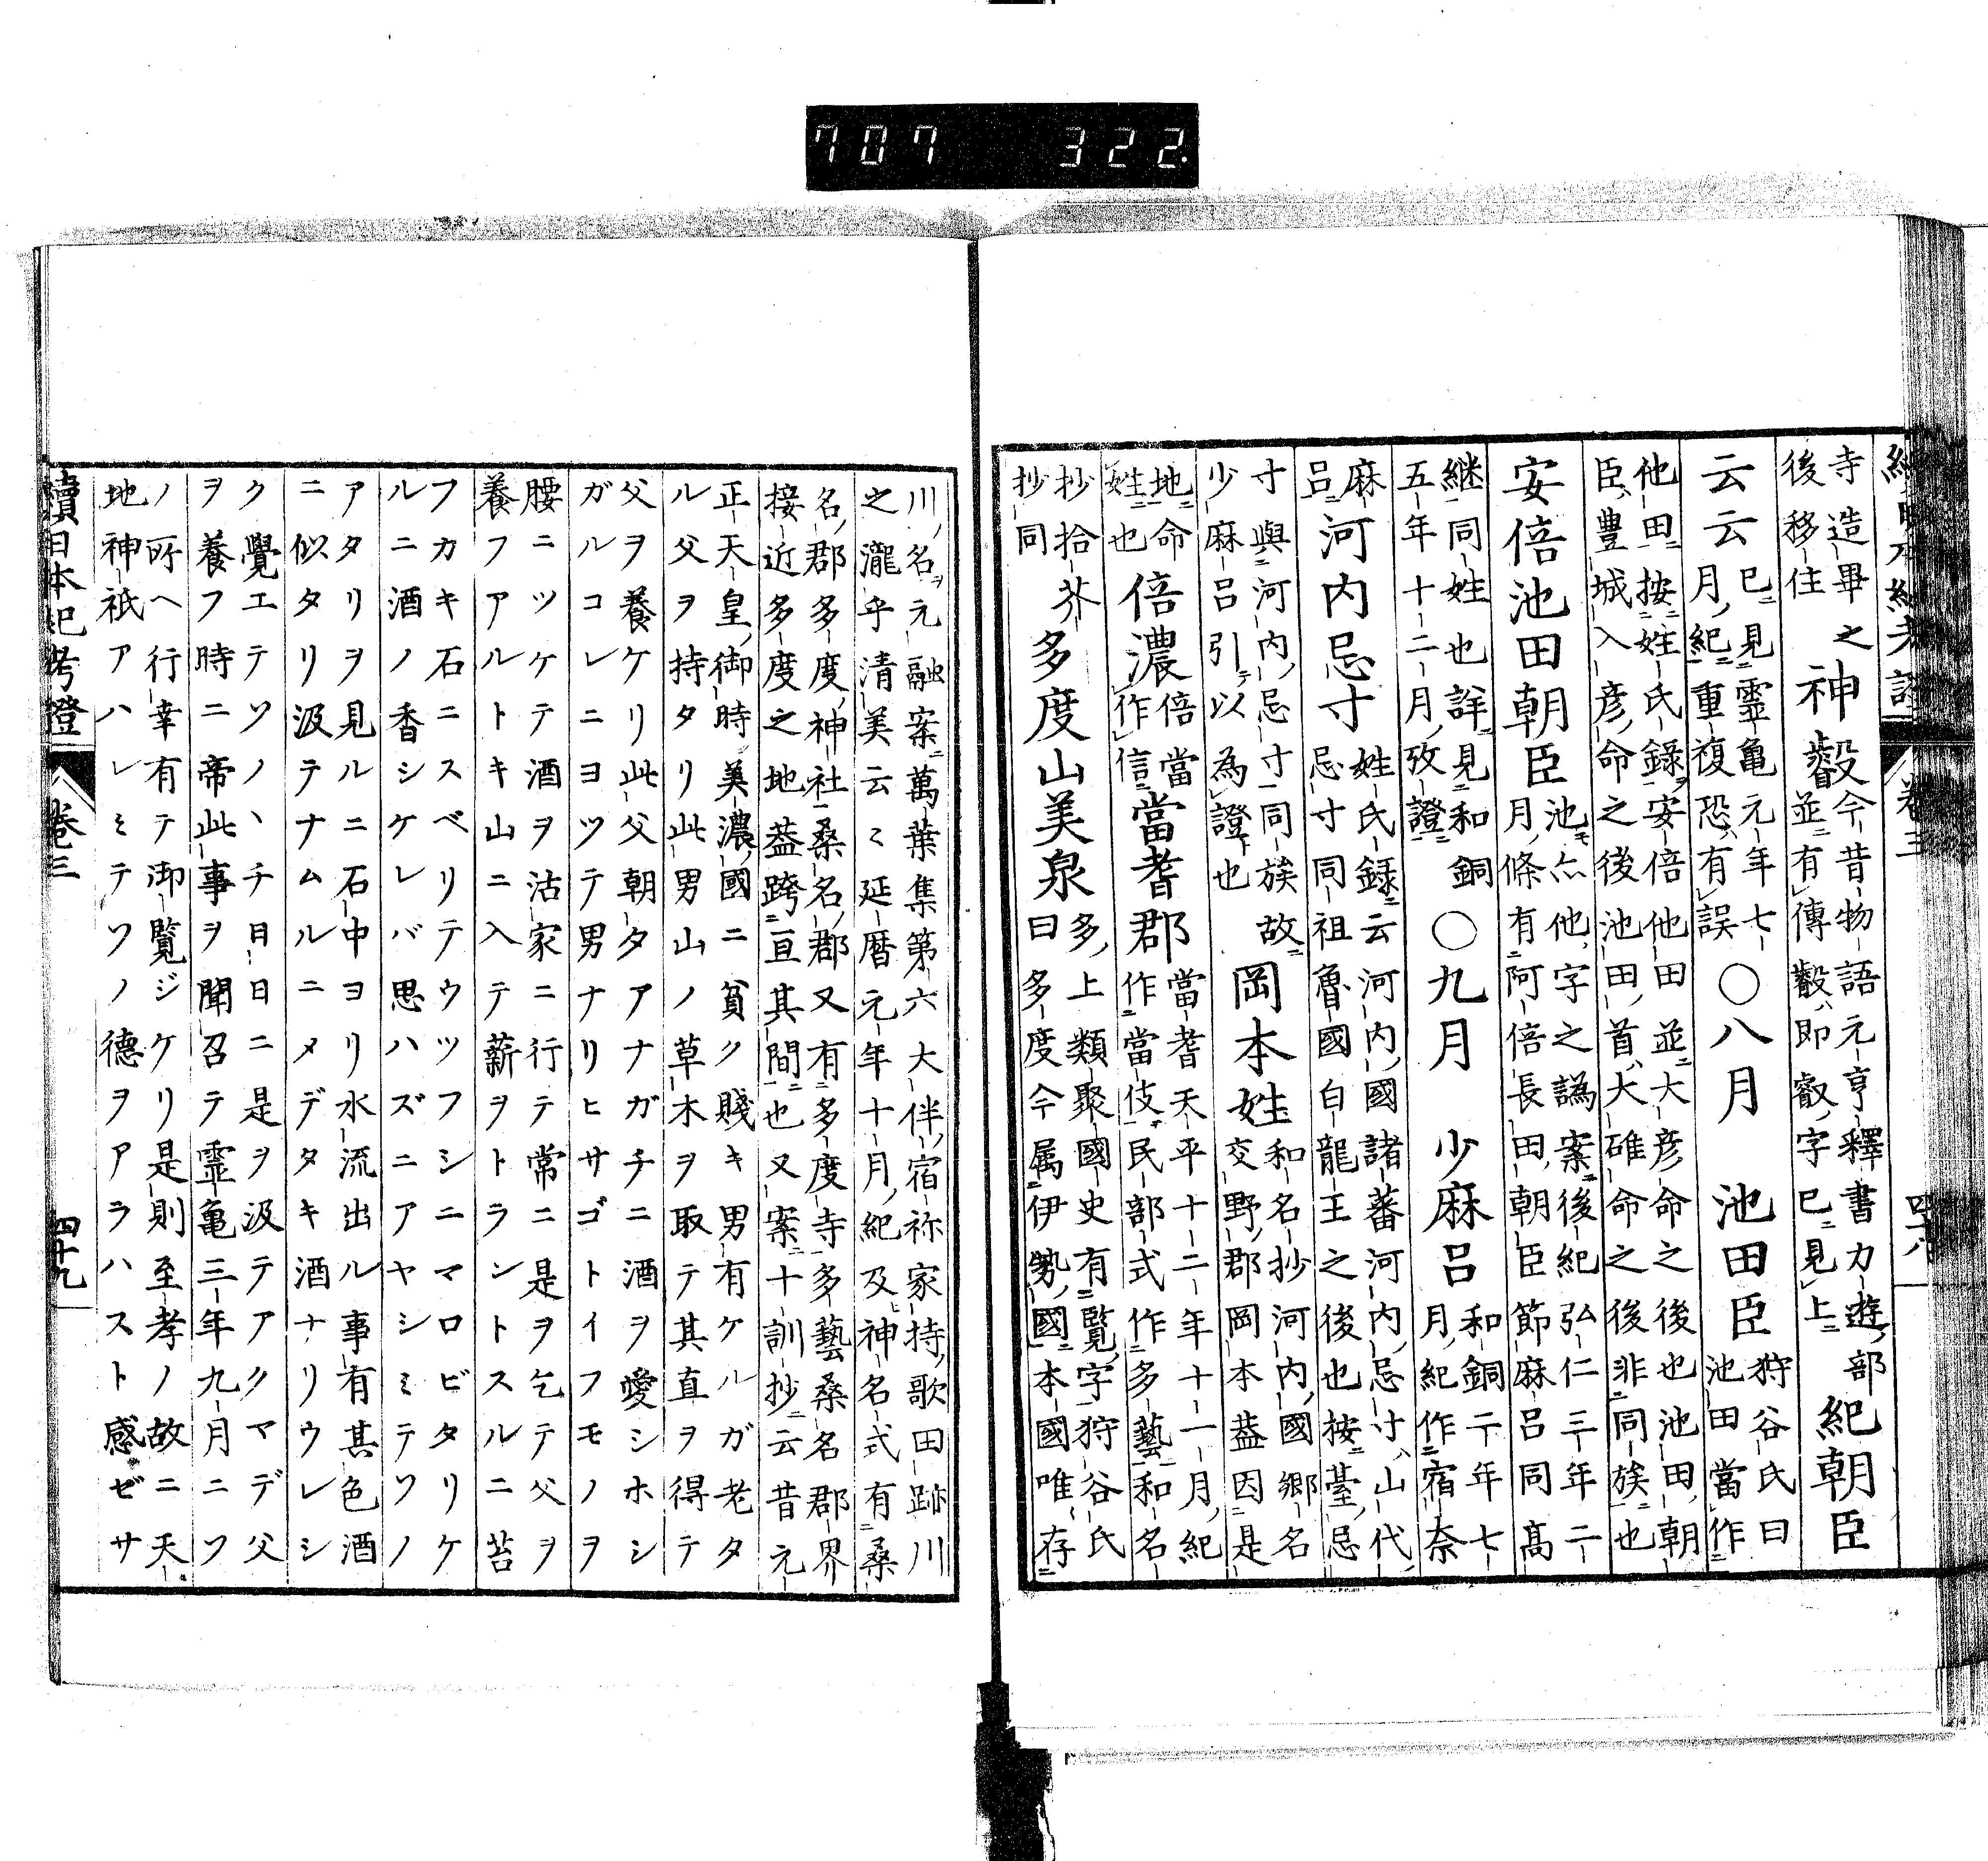 707 322
續日本紀考證 卷三 四十八
寺造畢之
後移住
神叡
今昔物語元亨釋書力遊部
並有傳叡即叡字已見上
紀朝臣
云云
已見靈亀元年七
月紀重複恐有誤
○八月 池田臣
狩谷氏曰
池田當作
他田按姓氏錄安倍他田並大彦命之後也池田朝
臣豊城入彦命之後池田首大碓命之後非同族也
安倍池田朝臣
池亦他字之譌案後紀弘仁三年二
月條有阿倍長田朝臣節麻呂同高
継同姓也詳見和銅
五年十二月攷證
○九月 少麻呂
和銅二年七
月紀作宿奈
麻
呂
河内忌寸
姓氏録云河内國諸蕃河内忌寸山代
忌寸同祖魯國白龍王之後也按䑓忌
寸與河内忌寸同族故
少麻呂引以為證也
岡本姓
和名抄河内國郷名
交野郡岡本葢因是
地命
姓也
倍濃
倍當
作信
當耆郡
當耆天平十二年十一月紀
作當伎民部式作多藝和名
抄拾芥
抄同
多度山美泉
多上類聚國史有覽字狩谷氏
曰多度今属伊勢國本國唯存
川名元融案萬葉集第六大伴宿祢家持歌田跡川
之瀧乎清美云々延暦元年十月紀及神名式有桑
名郡多度神社桑名郡又有多度寺多藝桑名郡界
接近多度之地葢跨亘其間也又案十訓抄云昔元
正天皇御時美濃國ニ貧ク賤キ男有ケルガ老タ
ル父ヲ持タリ此男山ノ草木ヲ取テ其直ヲ得テ
父ヲ養ケリ此父朝タアナガチニ酒ヲ愛シホシ
ガルコレニヨツテ男ナリヒサゴトイフモノヲ
腰ニツケテ酒ヲ沽家ニ行テ常ニ是ヲ乞テ父ヲ
養フアルトキ山ニ入テ薪ヲトラントスルニ苔
フカキ石ニスベリテウツフシニマロビタリケ
ルニ酒ノ香シケレバ思ハズニアヤシミテソノ
アタリヲ見ルニ石中ヨリ水流出ル事有其色酒
ニ似タリ汲テナムルニメデタキ酒ナリウレシ
ク覺エテソノヽチ日日ニ是ヲ汲テアクマデ父
ヲ養フ時ニ帝此事ヲ聞召テ霊亀三年九月ニソ
ノ所ヘ行幸有テ御覧ジケリ是則至孝ノ故ニ天
地神祇アハレミテソノ德ヲアラハスト感ゼサ
續日本紀考證 卷三 四十九